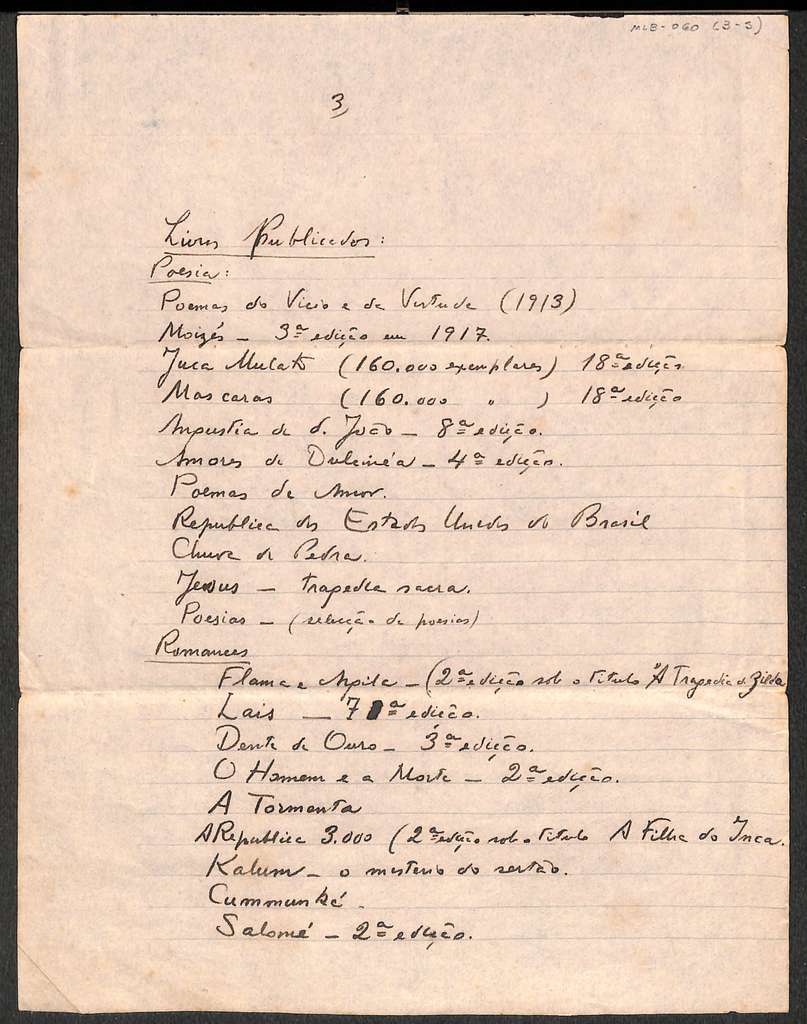 MLB-060 (3-5)
3,
Livros Publicados:
Poesia:
Poemas do Vicio e da Virtude (1913)
Moizés - 3ª edição em 1917.
Juca Mulato (160.000 exemplares) 18ª edição
Mascaras (160.000 " ) 18ª edição
Angustia de d. João - 8ª edição.
Amores de Dulcinéa - 4ª edição.
Poemas de Amor.
Republica dos Estados Unidos do Brasil
Chuva de Pedra.
Jesus - tragedia sacra.
Poesias - (selecção de poesias)
Romances
Flama e Argila - (2ª edição sob o titulo "A Tragedia de Zilda
Lais - 7ª edição.
Dente de Ouro - 3ª edição.
O Homem e a Morte - 2ª edição.
A Tormenta
A Republica 3.000 (2ª edição sob o titulo A Filha do Inca.
Kalum - o misterio do sertão.
Cummunká.
Salomé - 2ª edição.